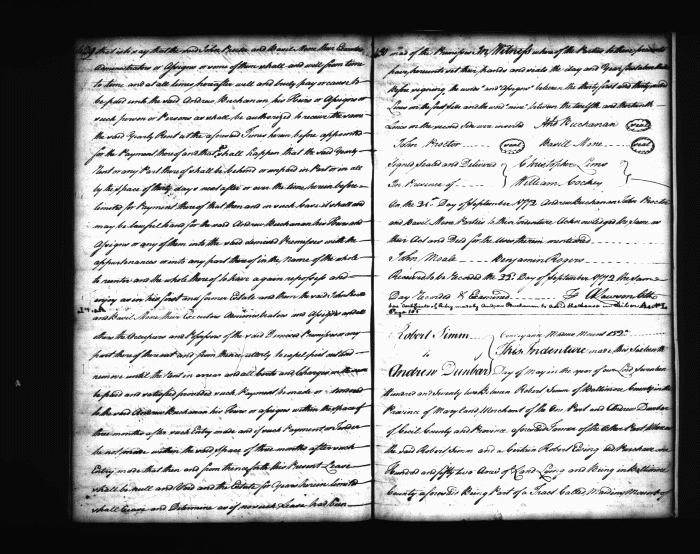 that is to say that the said John Proctor and Basil More their Executors
Administrators or Assigns or some of them shall and will from time
to time and at all times hereafter well and truly pay or cause to
be paid unto the said Andrew Buchanan his Heirs or Assigns or
such person or Persons as shall be authorized to receive the same
the said Yearly Rent at the aforesaid Times herein before appointed
for the Payment thereof and that if it shall happen that the said Yearly
Rent or any Part thereof shall be behind or unpaid in Part or in all
by the space of thirty days next after or over the time herein before
limited for Payment thereof that then and in such Case it shall and
may be lawful to and for the said Andrew Buchanan his Heirs and
Assigns or any of them into the said demised Premises with the
appurtenances or into any part thereof in the Name of the whole
to reenter and the whole thereof to have again repossess and
enjoy as in his first and former Estate and them the said John Proctor
and Basil More their Executors Administrators and Assigns and all
other the Occupiers and Possessors of the said Demised Premises or any
part thereof thereout and from thence utterly to expel put out and
remove until the Rent in arrear and all Costs and Charges
be paid and satisfied provided such Payment be made or tendered
to the said Andrew Buchanan his Heirs or Assigns within the space of
three months after such Entry made and if such Payment or Tender
be not made within the said space of three months after such
Entry made that then and from thenceforth this Present Lease
shall be null and Void and the Estate for Years herein limited
shall Cease and Determine as if no such Lease had been
mad of the Premises In Witness whereof the Parties to these presents
have hereunto set their hands and seals the day and Year first above
Before signing the words and Assigns between the thirty first and thirty second
Lines on the first side and the word between the twelfth and thirteenth
Lines on the second side were inserted And Buchanan (seal)
John Proctor (seal) Basill More (seal)
Signed Sealed and Delivered } Christopher Lims
In Presence of } William Cockey
On the 21st Day of September 1772 Andrew Buchanan John Proctor
and Basil More Parties to this Indenture Acknowledged the same as
their Act and Deed for the Uses therein mentioned
John Moale Benjamin Rogers
Received to be Recorded the 22d Day of September 1772 the same
Day Recorded & Examined A Lawson Clk
Robert Simm } Conveyance Madine Mount 152
to } This Indenture made this Sixteenth
Andrew Dunbar } Day of May in the year of our Lord Seventeen
Hundred and Seventy two Between Robert Simm of Baltimore County in the
Province of Maryland Merchant of the One Part and Andrew Dunbar
of Cecil County and Province aforesaid Farmer of the Other Part Whereas
the said Robert Simm and a Certain Robert Ewing did Purchase One
Hundred and fifty two Acres of Land Lying and Being in Baltimore
County aforesaid Being Part of a Tract Called Madine Mount